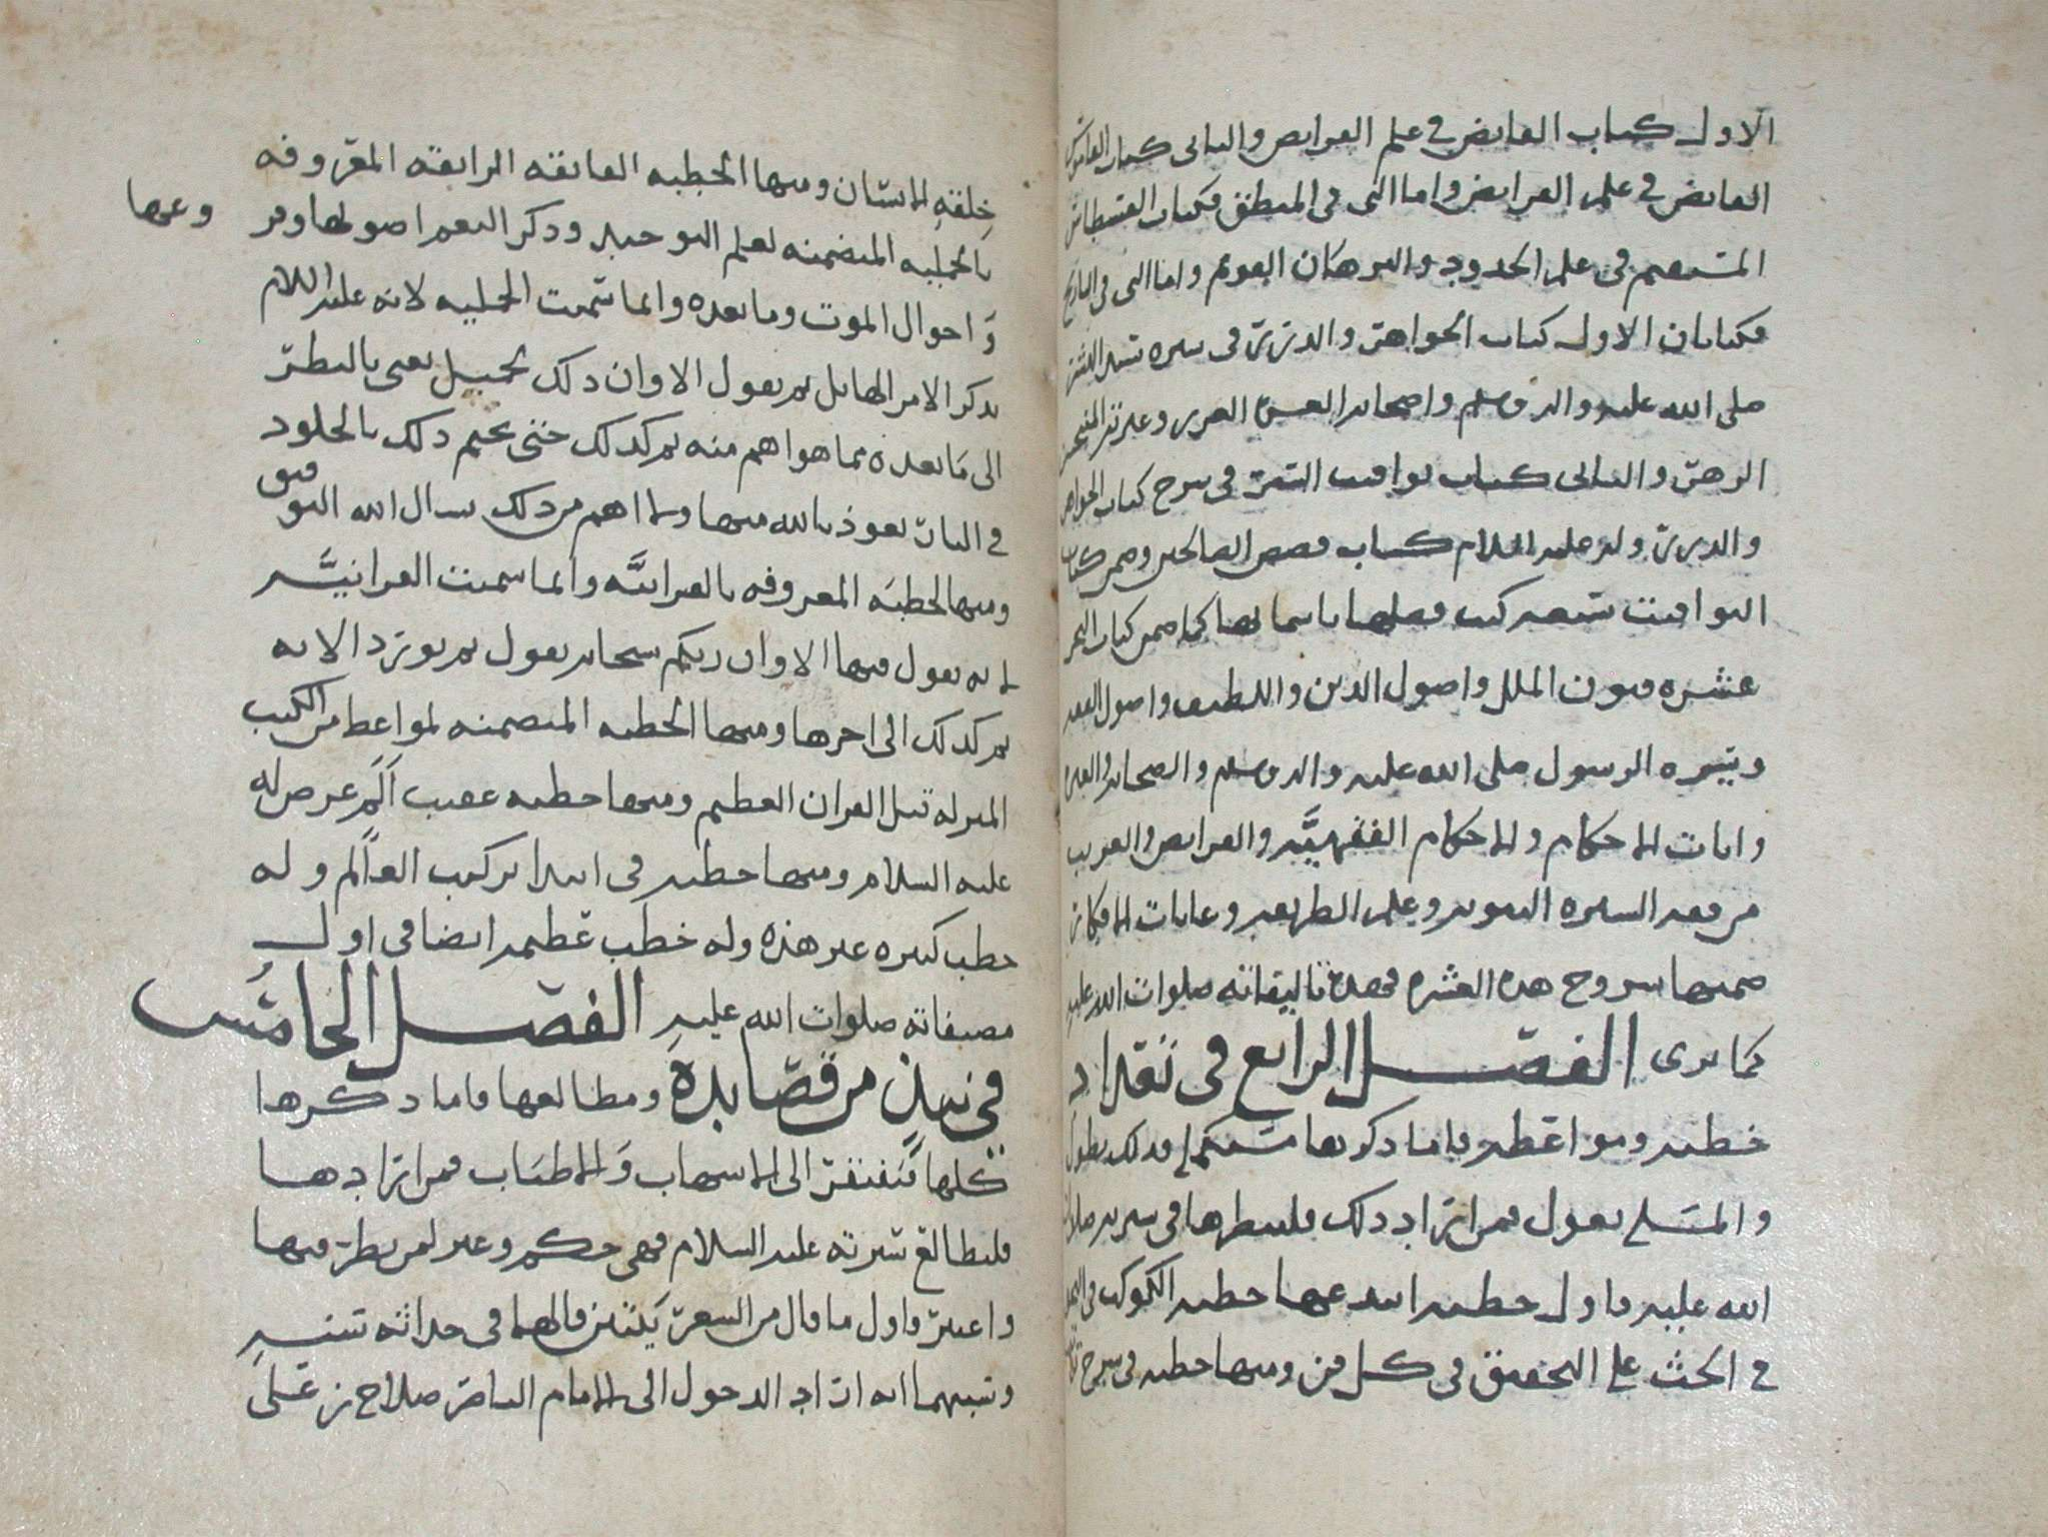 الاول كتاب الفايض في علم الفرايض والثاني كتاب القاموس
الفايض في علم الفرايض واما التي في المنطق فكتاب القسطاس
المستقيم في علم الحدود والبرهان القويم واما التي في التاريخ
فكتابان الاول كتاب الجواهر والدرر في سيره سيد البشر
صلى الله عليه واله وسلم واصحابه العشره الغرر وعترته المنتجبين
الزهر والثاني كتاب يواقيت السير في شرح كتاب الجواهر
والدرر وله عليه السلام كتاب قصص الصالحين وضمن كتاب
اليواقيت تسعه كتب فصلها باسمائها كما ضمن كتاب البحر
عشره فنون الملل واصول الدين واللطيف واصول الفقه
وسيره الرسول صلى الله عليه واله وسلم والصحابه والعتره
وايات الاحكام والاحكام الفقهيه والفرايض والغريب
من فقه السيره النبويه وعلم الطريقه وغايات الافكار
ضمنها شروح هذه العشره فهذه تاليفاته صلوات الله عليه
كما ترى الفصل الرابع في تعداد
خطبه ومواعظه فاما ذكرها مستكملا فذلك يطول
والمتسلي يقول فمن اراد ذلك فلينظرها في سيرته صلوات
الله عليه فاول خطبه انشدعها خطبه الكوكب في البحر
في الحث على التحقيق في كل فن ومنها خطبه في شرح
خلقه الانسان ومنها الخطبه الفايقه الرايقه المعروفه
بالجمليه المتضمنه لعلم التوحيد وذكر النعم اصولها وفر
وعها
واحوال الموت وما بعده وانما سميت الجمليه لانه عليه السلام
يذكر الامر الهايل ثم يقول الا وان ذلك لجميل يعني بالنظر
الى ما بعده مما هو اهم منه ثم كذلك حتى يختم ذلك بالخلود
في النار نعوذ بالله منها ولما اهم من ذلك نسال الله التو
فيق
ومنها الخطبه المعروفه بالقرانيه وانما سميت القرانيه
لانه يقول فيها الا وان ربكم سبحانه يقول ثم يورد الايه
ثم كذلك الى اخرها ومنها الخطبه المتضمنه لمواعظ من الكتب
المنزله قبل القران العظيم ومنها خطبه عقيب الم عرض له
عليه السلام ومنها خطبه في ابتدا تركيب العالم وله
خطب كثيره غير هذه وله خطب عظيمه ايضا في اول
مصنفاته صلوات الله عليه الفصل الخامس
في نبذ من قصايده ومطالعها فاما ذكرها
كلها فيفتقر الى الاسهاب والاطناب فمن ارادها
فليطالع سيرته عليه السلام فهي حكم وعبر لمن نظر فيها
واعتبر فاول ما قال من الشعر بيتين قالهما في حداثه سنه
وسببهما انه اراد الدخول الى الامام الناصر صلاح بن علي